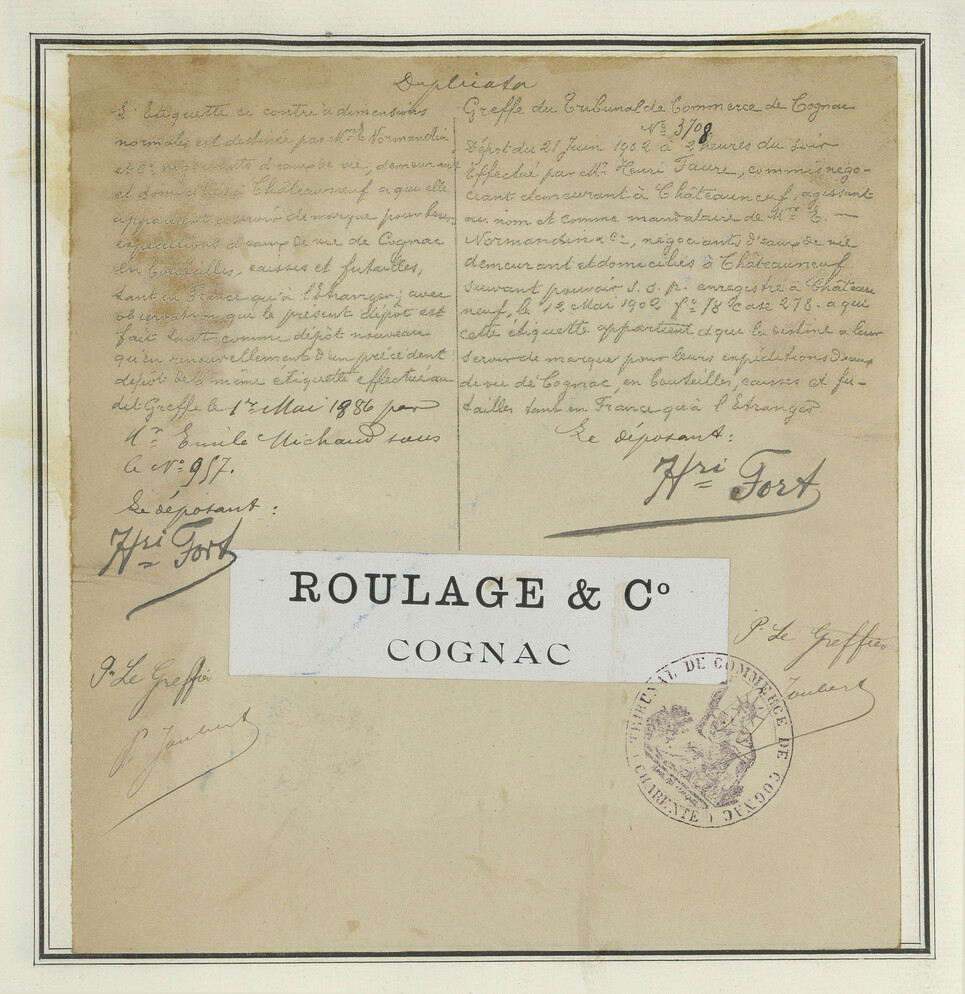 Duplicata
L'Etiquette ci contre à dimensions
normales est destinée par Mrs E. Normandin
et Cie négociants d'eaux de vie, demeurant
et domiciliés à Châteauneuf a qui elle
appartient à servir de marque pour leurs
expéditions d'eaux de vie de Cognac
en bouteilles, caisses et futailles,
tant en France qu'à l'étranger; avec
observation que le présent dépôt est
fait tant comme dépôt nouveau
qu'en renouvellement d'un précédent
dépôt de la même étiquette effectué au
dit Greffe le 1er Mai 1886 par
Mr Emile Michaud sous
le No 957.
Le déposant:
Hri Fort
Pr Le Greffier
P. Joubert
Greffe du Tribunal de Commerce de Cognac
No 3708
Dépôt du 21 Juin 1902 à 2 heures du soir
Effectué par Mr Henri Faure, commis négo-
ciant demeurant à Châteauneuf, agissant
au nom et comme mandataire de Mrs E. —
Normandin & Cie, négociants d'eaux de vie
demeurant et domiciliés à Châteauneuf
suivant pouvoir s.s.p. enregistré à Château
neuf, le 12 Mai 1902 fo 78 case 278. a qui
cette étiquette appartient et que la destine a leur
servir de marque pour leurs expéditions d'eaux
de vie de Cognac, en bouteilles, caisses et fu-
tailles tant en France qu'à l'Etranger.
Le déposant:
Hri Fort
ROULAGE & Co
COGNAC
Pr Le Greffier
Joubert
TRIBUNAL DE COMMERCE DE COGNAC (CHARENTE)